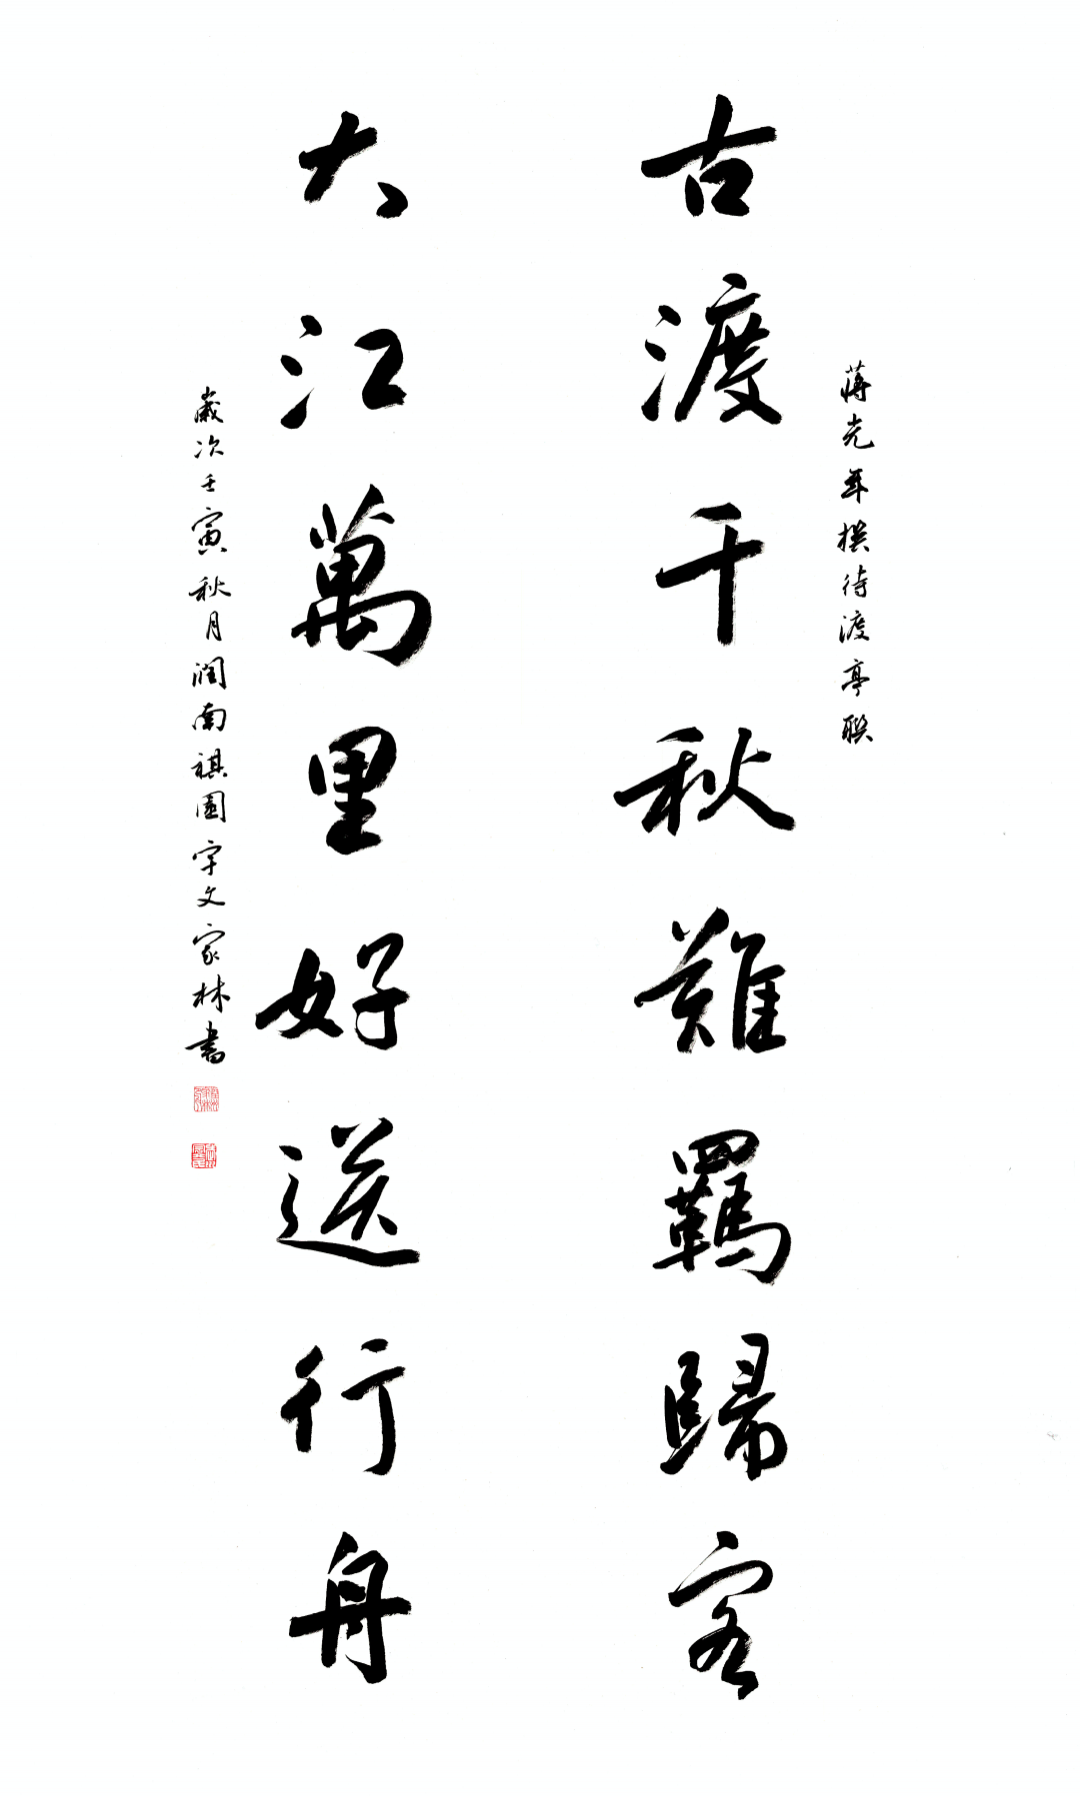 蔣光年撰待渡亭联
古渡千秋難羈歸客
大江萬里好送行舟
歲次壬寅秋月潤南祺園宇文家林書